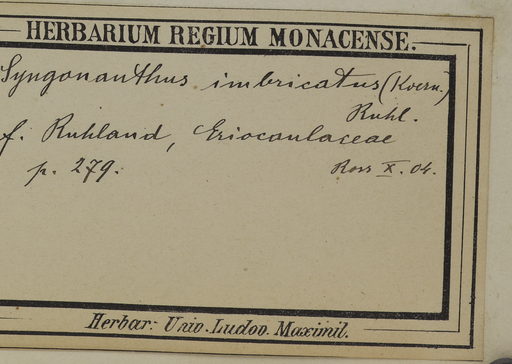 HERBARIUM REGIUM MONACENSE.
Syngonanthus imbricatus (Koern.)
Ruhl.
f. Ruhland, Eriocaulaceae
p. 279.
Ross X. 04.
Herbar. Univ. Ludov. Maximil.